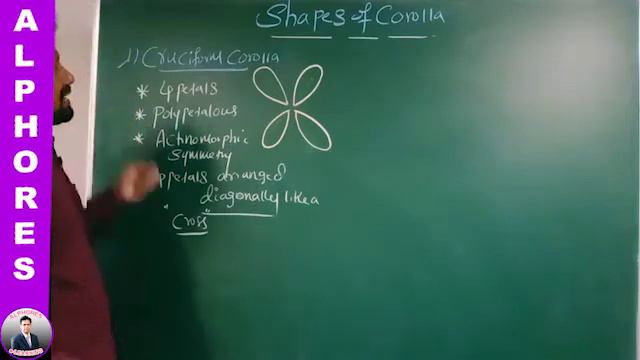 ALPHORES
Shapes of Corolla
1) Cruciform Corolla
* 4 petals
* Polypetalous
* Actinomorphic
symmetry
petals arranged
diagonally like a
"Cross"
ALPHORES
E-LEARNING